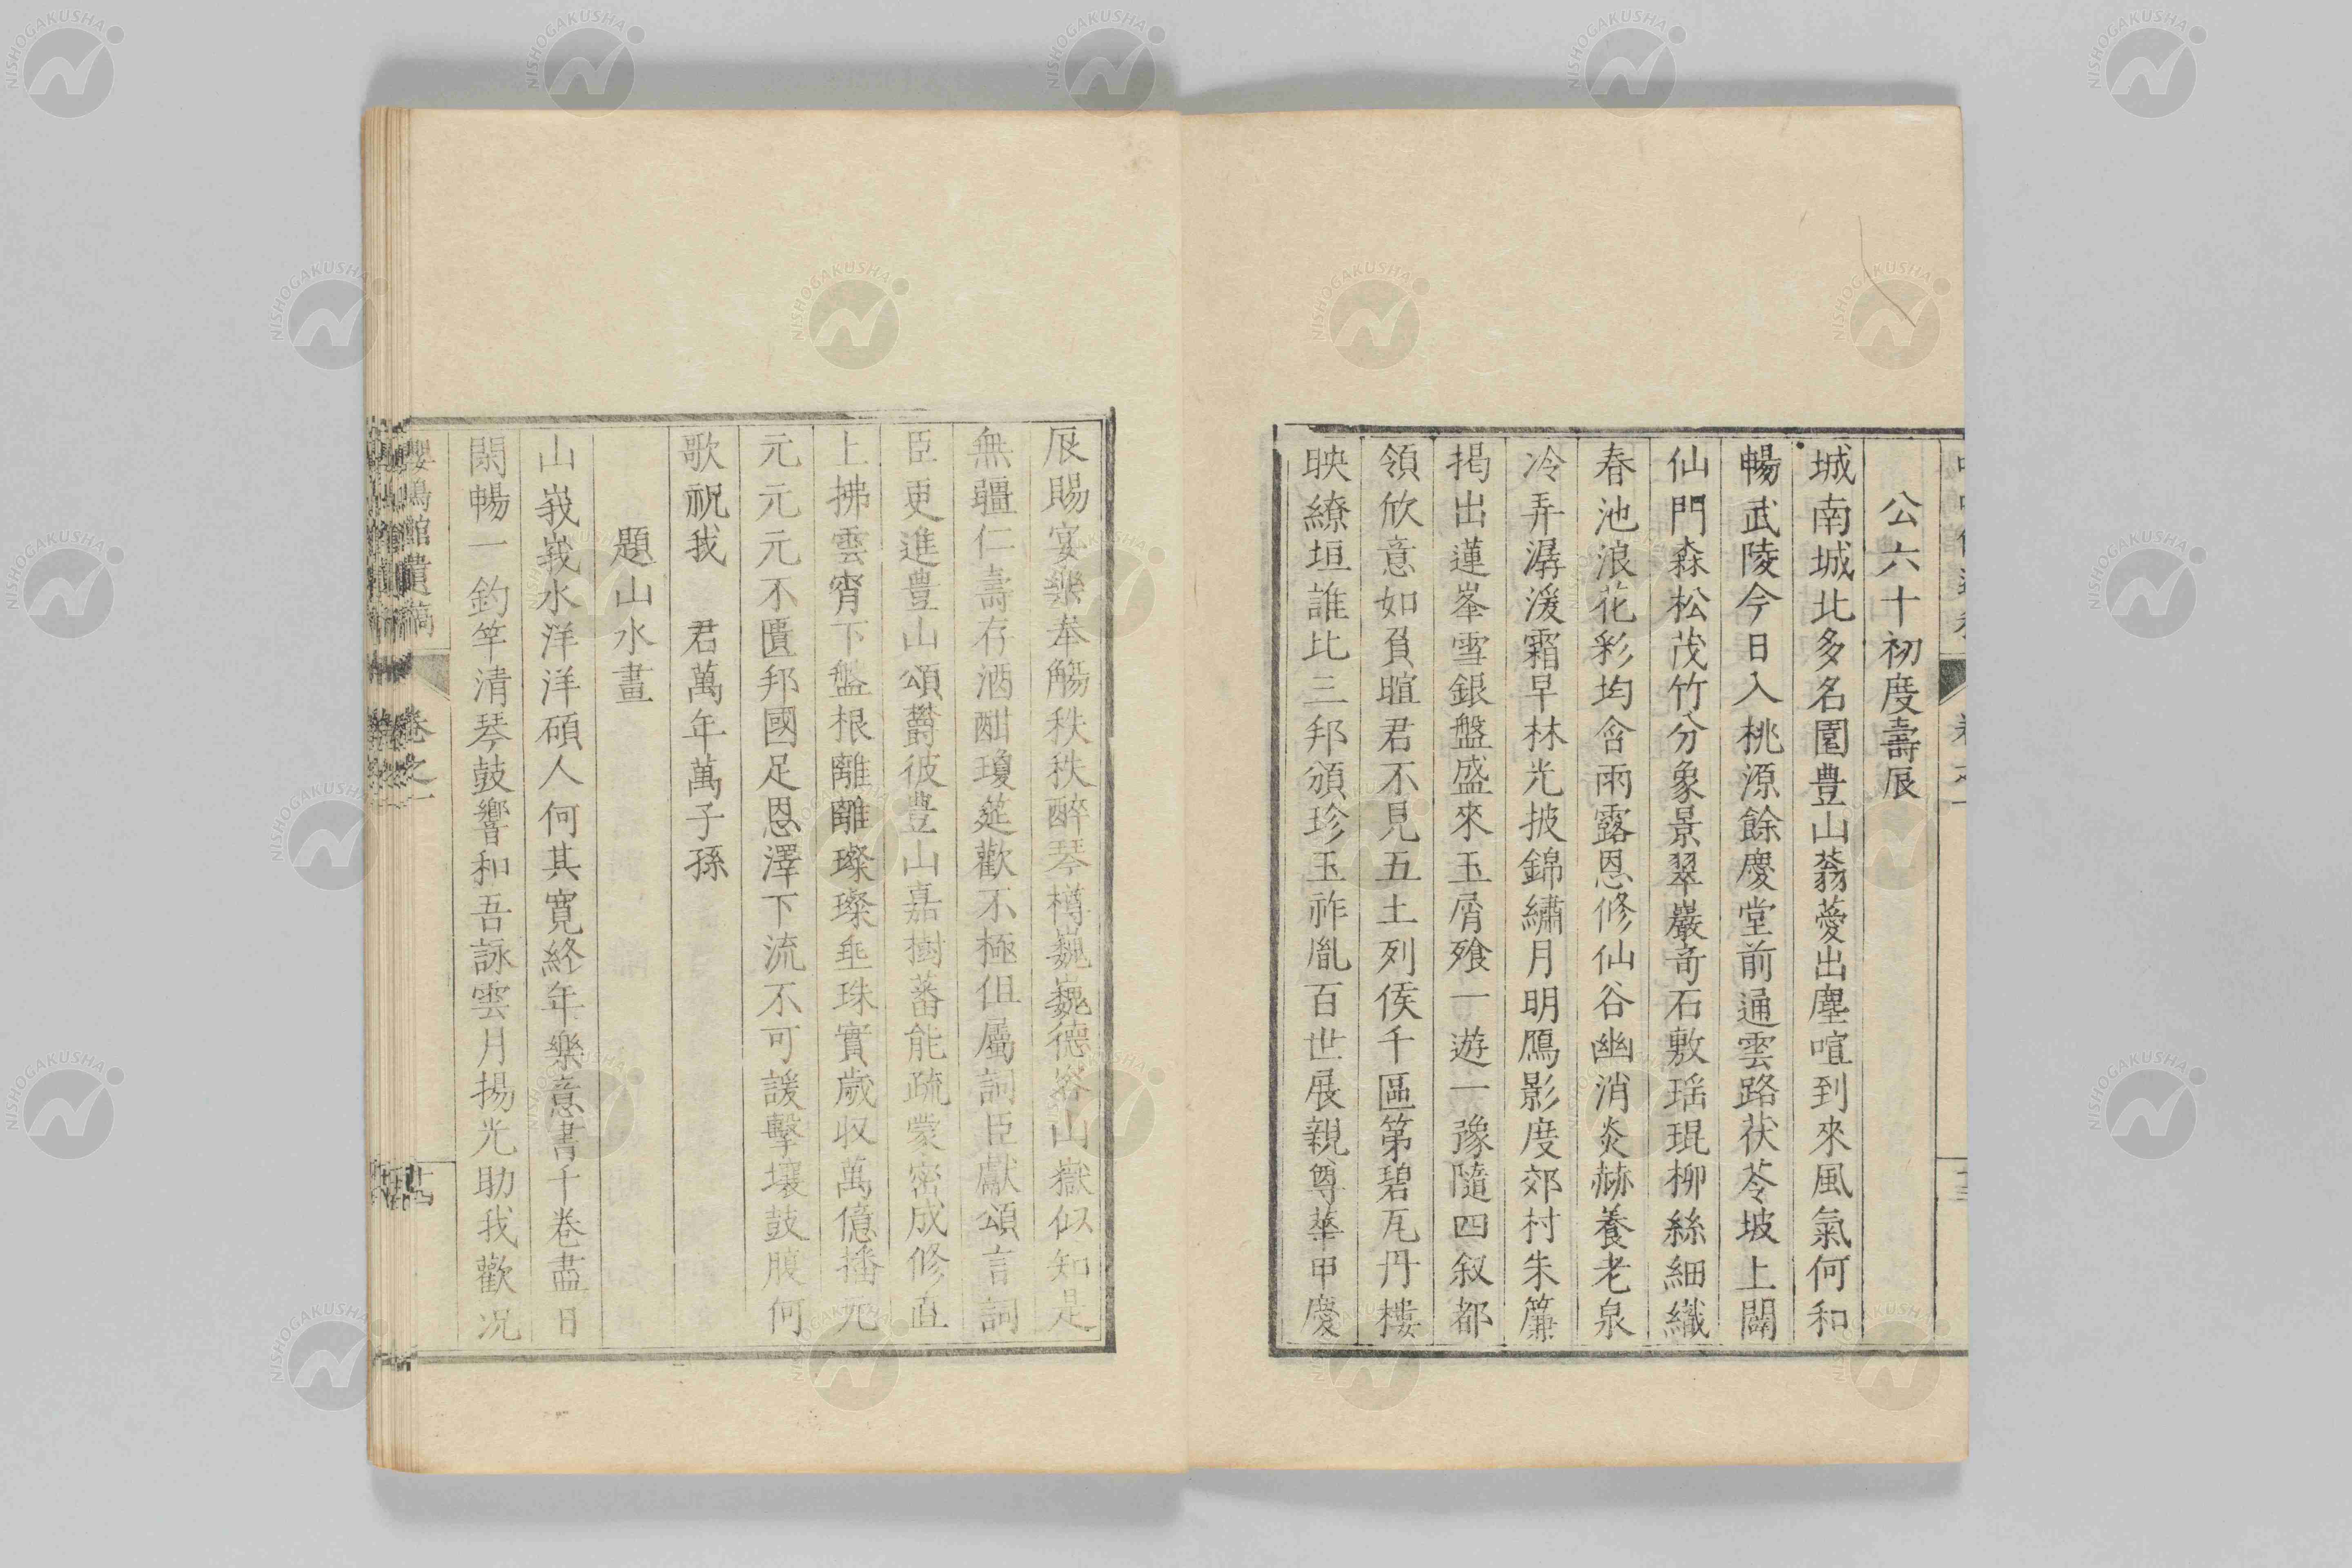 公六十初度壽辰
城南城北多名園豊山蓊薆出塵喧到來風氣何和
暢武陵今日入桃源餘慶堂前通雲路茯苓坡上闢
仙門森松茂竹分象景翠巖奇石敷瑶琨柳絲細織
春池浪花彩均含雨露恩修仙谷幽消炎赫養老泉
冷弄潺湲霜早林光披錦繡月明鴈影度郊村朱簾
掲出蓮峯雪銀盤盛來玉屑飱一遊一豫隨四叙都
領欣意如負暄君不見五土列侯千區第碧瓦丹樓
映繚垣誰比三邦頒珍玉祚胤百世展親尊華甲慶
辰賜宴樂奉觴秩秩醉琴樽巍巍德容山嶽似知是
無疆仁壽存酒酣瓊莚歡不極但屬詞臣獻頌言詞
臣更進豊山頌欝彼豊山嘉樹蕃能疏蒙密成修直
上拂雲霄下盤根離離璨璨垂珠實歳収萬億播元
元元元不匱邦國足恩澤下流不可諼擊壤鼓腹何
歌祝我　君萬年萬子孫
題山水畫
山峩峩水洋洋碩人何其寛終年樂意書千卷盡日
閑暢一釣竿清琴鼓響和吾詠雲月揚光助我歡况
嚶鳴館遺稿　卷之一
NISHOGAKUSHA